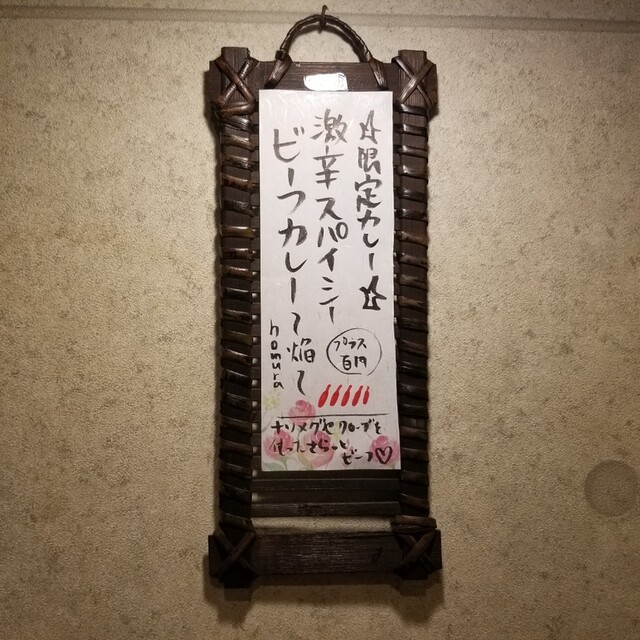 ☆限定カレー☆
激辛スパイシー
ビーフカレー〜焔〜
homura
プラス
百円
ナツメグやクローブを
使ったさらっと
ビーフ♡